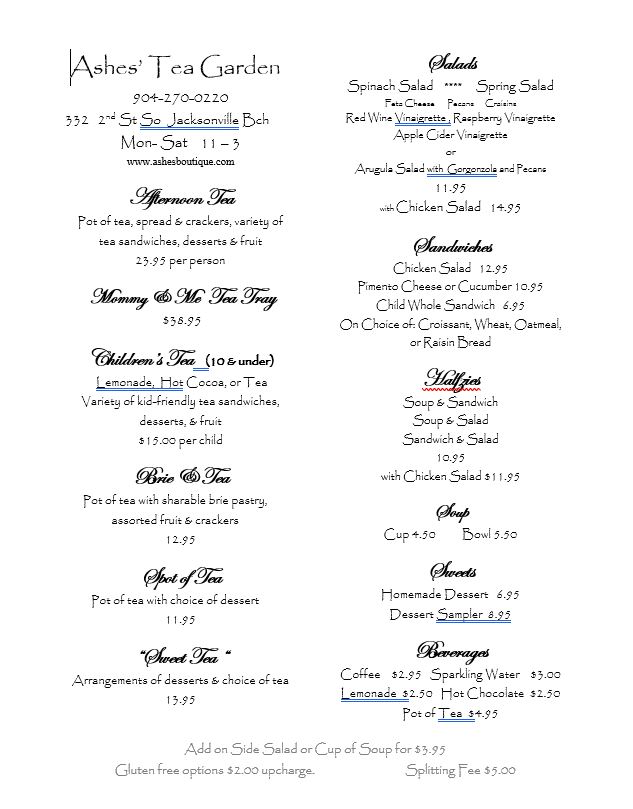 Ashes' Tea Garden
904-270-0220
332 2nd St So Jacksonville Bch
Mon- Sat 11 – 3
www.ashesboutique.com
Afternoon Tea
Pot of tea, spread & crackers, variety of
tea sandwiches, desserts & fruit
23.95 per person
Mommy & Me Tea Tray
$38.95
Children's Tea (10 & under)
Lemonade, Hot Cocoa, or Tea
Variety of kid-friendly tea sandwiches,
desserts, & fruit
$15.00 per child
Brie & Tea
Pot of tea with sharable brie pastry,
assorted fruit & crackers
12.95
Spot of Tea
Pot of tea with choice of dessert
11.95
"Sweet Tea "
Arrangements of desserts & choice of tea
13.95
Salads
Spinach Salad **** Spring Salad
Feta Cheese Pecans Craisins
Red Wine Vinaigrette , Raspberry Vinaigrette
Apple Cider Vinaigrette
or
Arugula Salad with Gorgonzola and Pecans
11.95
with Chicken Salad 14.95
Sandwiches
Chicken Salad 12.95
Pimento Cheese or Cucumber 10.95
Child Whole Sandwich 6.95
On Choice of: Croissant, Wheat, Oatmeal,
or Raisin Bread
Halfzies
Soup & Sandwich
Soup & Salad
Sandwich & Salad
10.95
with Chicken Salad $11.95
Soup
Cup 4.50 Bowl 5.50
Sweets
Homemade Dessert 6.95
Dessert Sampler 8.95
Beverages
Coffee $2.95 Sparkling Water $3.00
Lemonade $2.50 Hot Chocolate $2.50
Pot of Tea $4.95
Add on Side Salad or Cup of Soup for $3.95
Gluten free options $2.00 upcharge. Splitting Fee $5.00